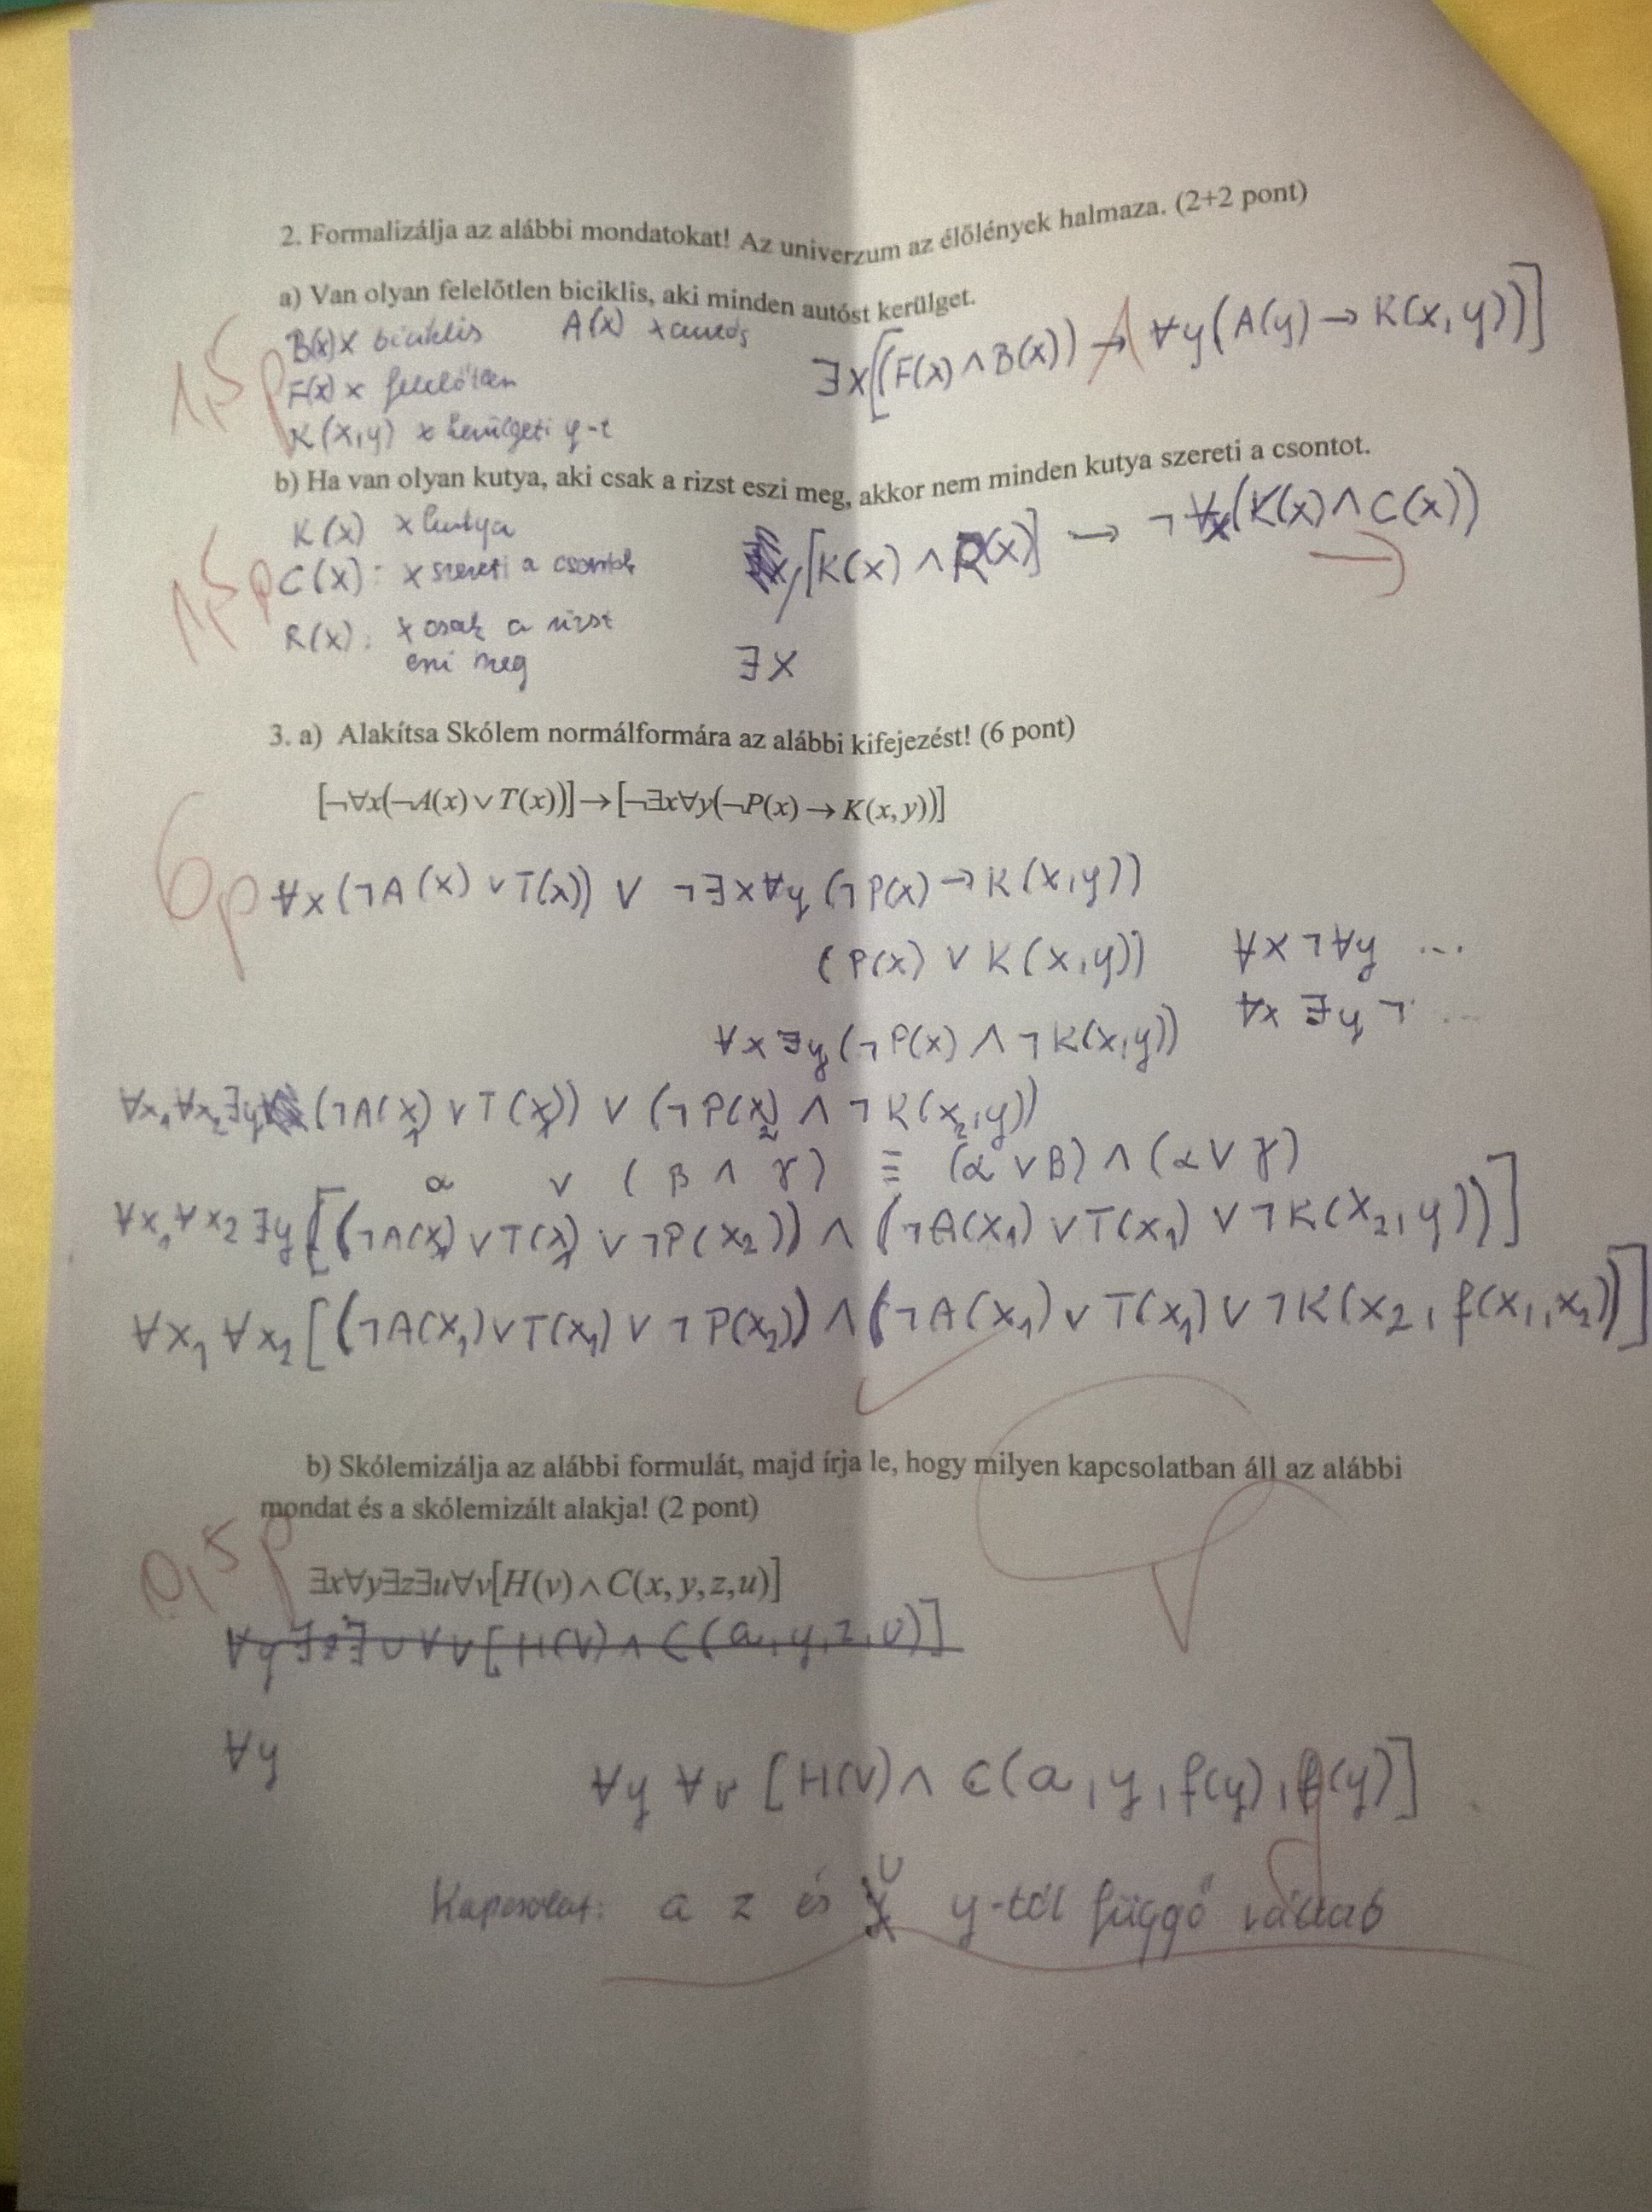 2. Formalizálja az alábbi mondatokat! Az univerzum az élőlények halmaza. (2+2 pont)
a) Van olyan felelőtlen biciklis, aki minden autóst kerülget.
1,5p
B(x) x biciklis A(x) x autós
F(x) x felelőtlen
K(x,y) x kerülgeti y-t
∃x[(F(x) ∧ B(x)) → ∧ ∀y(A(y) → K(x,y))]
b) Ha van olyan kutya, aki csak a rizst eszi meg, akkor nem minden kutya szereti a csontot.
1,5p
K(x) x kutya
C(x): x szereti a csontot
R(x): x csak a rizst
eszi meg
[K(x) ∧ R(x)] → ¬∀x(K(x) ∧ C(x))
→
∃x
3. a) Alakítsa Skólem normálformára az alábbi kifejezést! (6 pont)
[¬∀x(¬A(x) ∨ T(x))] → [¬∃x∀y(¬P(x) → K(x, y))]
6p
∀x(¬A(x) ∨ T(x)) ∨ ¬∃x∀y(¬P(x) → K(x,y))
(P(x) ∨ K(x,y)) ∀x¬∀y ...
∀x∃y(¬P(x) ∧ ¬K(x,y)) ∀x ∃y ¬ ...
∀x₁∀x₂∃y (¬A(x₁) ∨ T(x₁)) ∨ (¬P(x₂ ∧ ¬K(x₂,y))
α ∨ (β ∧ γ) ≡ (α ∨ β) ∧ (α ∨ γ)
∀x₁∀x₂∃y[(¬A(x₁) ∨ T(x₁) ∨ ¬P(x₂)) ∧ (¬A(x₁) ∨ T(x₁) ∨ ¬K(x₂,y))]
∀x₁∀x₂[(¬A(x₁) ∨ T(x₁) ∨ ¬P(x₂)) ∧ (¬A(x₁) ∨ T(x₁) ∨ ¬K(x₂, f(x₁,x₂))]
b) Skólemizálja az alábbi formulát, majd írja le, hogy milyen kapcsolatban áll az alábbi
mondat és a skólemizált alakja! (2 pont)
0,5p
∃x∀y∃z∃u∀v[H(v) ∧ C(x, y, z,u)]
∀y∃z∃u∀v[H(v) ∧ C(a,y,z,u)]
∀y
∀y∀v[H(v) ∧ C(a, y, f(y), g(y)]
Kapcsolat: a z és u y-tól függő váltak